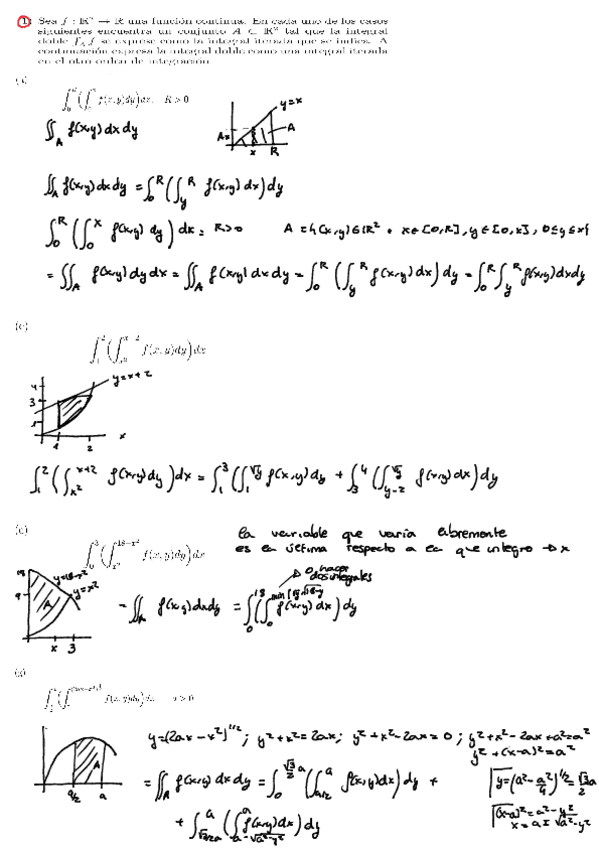 1. Sea f : ℝ² → ℝ una función continua. En cada uno de los casos
siguientes encuentra un conjunto A ⊂ ℝ² tal que la integral
doble ∫_A f se exprese como la integral iterada que se indica. A
continuación expresa la integral doble como una integral iterada
en el otro orden de integración.
∫_0^R (∫_0^x f(x,y)dy)dx, R > 0
∬_A f(x,y) dx dy
y=x
A
Ax
x R
∬_A f(x,y) dx dy = ∫_0^R (∫_y^R f(x,y) dx) dy
∫_0^R (∫_0^x f(x,y) dy) dx = R>0 A = {(x,y) ∈ ℝ² : x ∈ [0,R], y ∈ [0,x], 0≤y≤x}
= ∬_A f(x,y) dy dx = ∬_A f(x,y) dx dy = ∫_0^R (∫_y^R f(x,y) dx) dy = ∫_0^R ∫_y^R f(x,y) dx dy
∫_1^2 (∫_{x²}^{x+2} f(x,y)dy)dx
y=x+2
4
3
1
1 2 x
∫_1^2 (∫_{x²}^{x+2} f(x,y) dy) dx = ∫_1^3 (∫_1^{√y} f(x,y) dy + ∫_3^4 (∫_{y-2}^{√y} f(x,y) dx) dy
la variable que varía libremente
es la última respecto a la que integro → x
∫_0^3 (∫_{x²}^{18-x²} f(x,y)dy)dx
18
y=18-x²
y=x²
9
A
x 3
→ O hacer
dos integrales
= ∬_A f(x,y) dx dy = ∫_0^{18} (∫_0^{min{√y,√18-y}} f(x,y) dx) dy
a > 0
A
a/2 a
y=(2ax-x²)^{1/2}; y²+x²=2ax; y²+x²-2ax=0; y²+x²-2ax+a²=a²
y²+(x-a)²=a²
= ∬_A f(x,y) dx dy = ∫_0^{√3/2 a} (∫_{a/2}^a f(x,y) dx) dy +
y=(a²-a²/4)^{1/2} = √3a/2
+ ∫_{√3/2 a}^a (∫_{a-√a²-y²}^a f(x,y) dx) dy
(x-a)²=a²-y²
x=a±√a²-y²